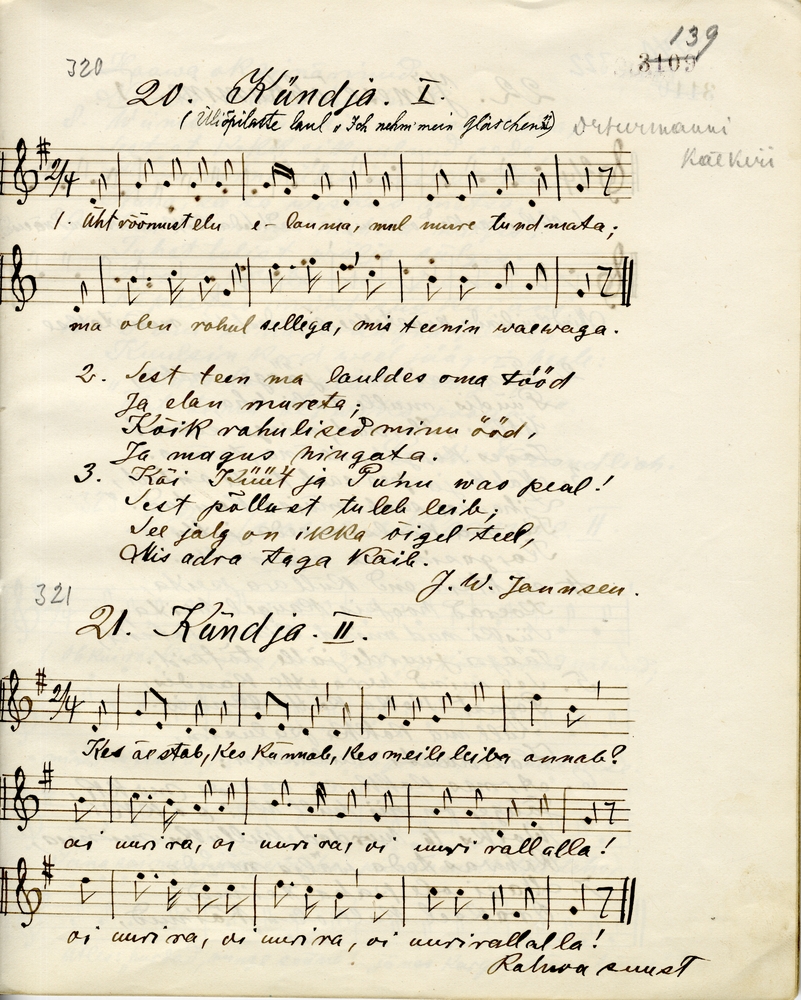 139
3109
320
20. Kündja. I.
(Üliõpilaste laul "Ich nehm' mein Gläschen")
Kälkiri
2/4
1. Üht rõõmust elu e- lan ma, mul mure tundmata;
ma olen rahul sellega, mis teenin waewaga.
2. Sest teen ma lauldes oma tööd
Ja elan mureta;
Kõik rahulised minu ööd,
Ja magus hingata.
3. Käi Küüt ja Punu was peal!
Sest põllust tuleb leib;
See jalg on ikka õigel teel,
Mis adra taga käib.
J. W. Jannsen.
321
21. Kündja. II.
2/4
Kes äestab, kes künnab, kes meile leiba annab?
ai uurira, oi uurira, oi uuri rallalla!
oi uurira, oi uurira, oi uurirallalla!
Rahwa suust